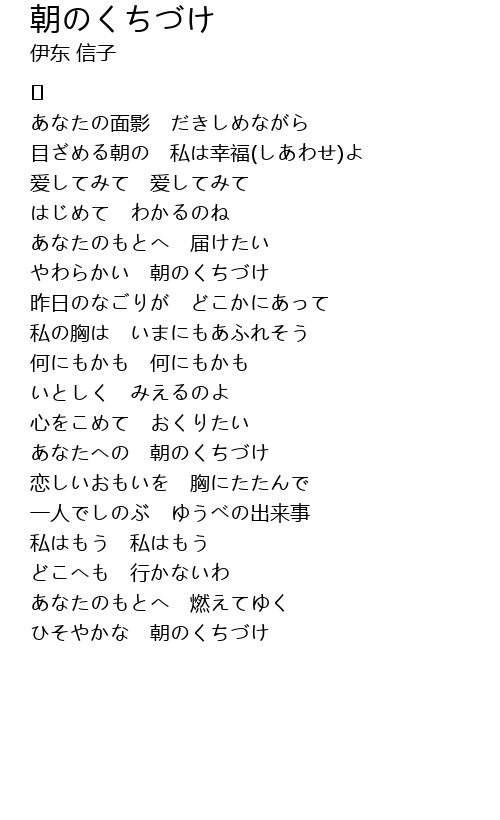 朝のくちづけ
伊东 信子
あなたの面影　だきしめながら
目ざめる朝の　私は幸福(しあわせ)よ
爱してみて　爱してみて
はじめて　わかるのね
あなたのもとへ　届けたい
やわらかい　朝のくちづけ
昨日のなごりが　どこかにあって
私の胸は　いまにもあふれそう
何にもかも　何にもかも
いとしく　みえるのよ
心をこめて　おくりたい
あなたへの　朝のくちづけ
恋しいおもいを　胸にたたんで
一人でしのぶ　ゆうべの出来事
私はもう　私はもう
どこへも　行かないわ
あなたのもとへ　燃えてゆく
ひそやかな　朝のくちづけ